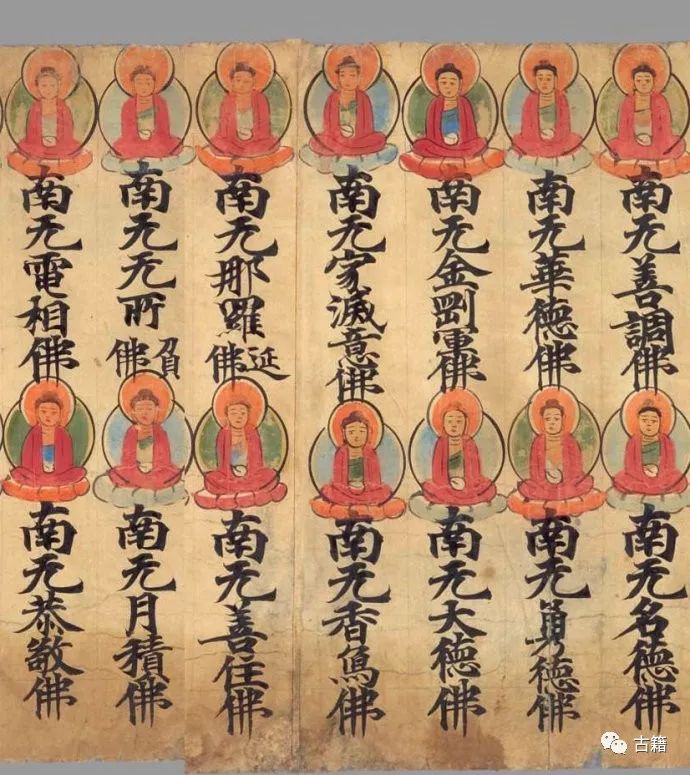 南无善調佛
南无名德佛
南无華德佛
南无勇德佛
南无金剛軍佛
南无大德佛
南无寂滅意佛
南无香象佛
南无那羅延佛
南无善住佛
南无无所負佛
南无月積佛
南无電相佛
南无恭敬佛
古籍